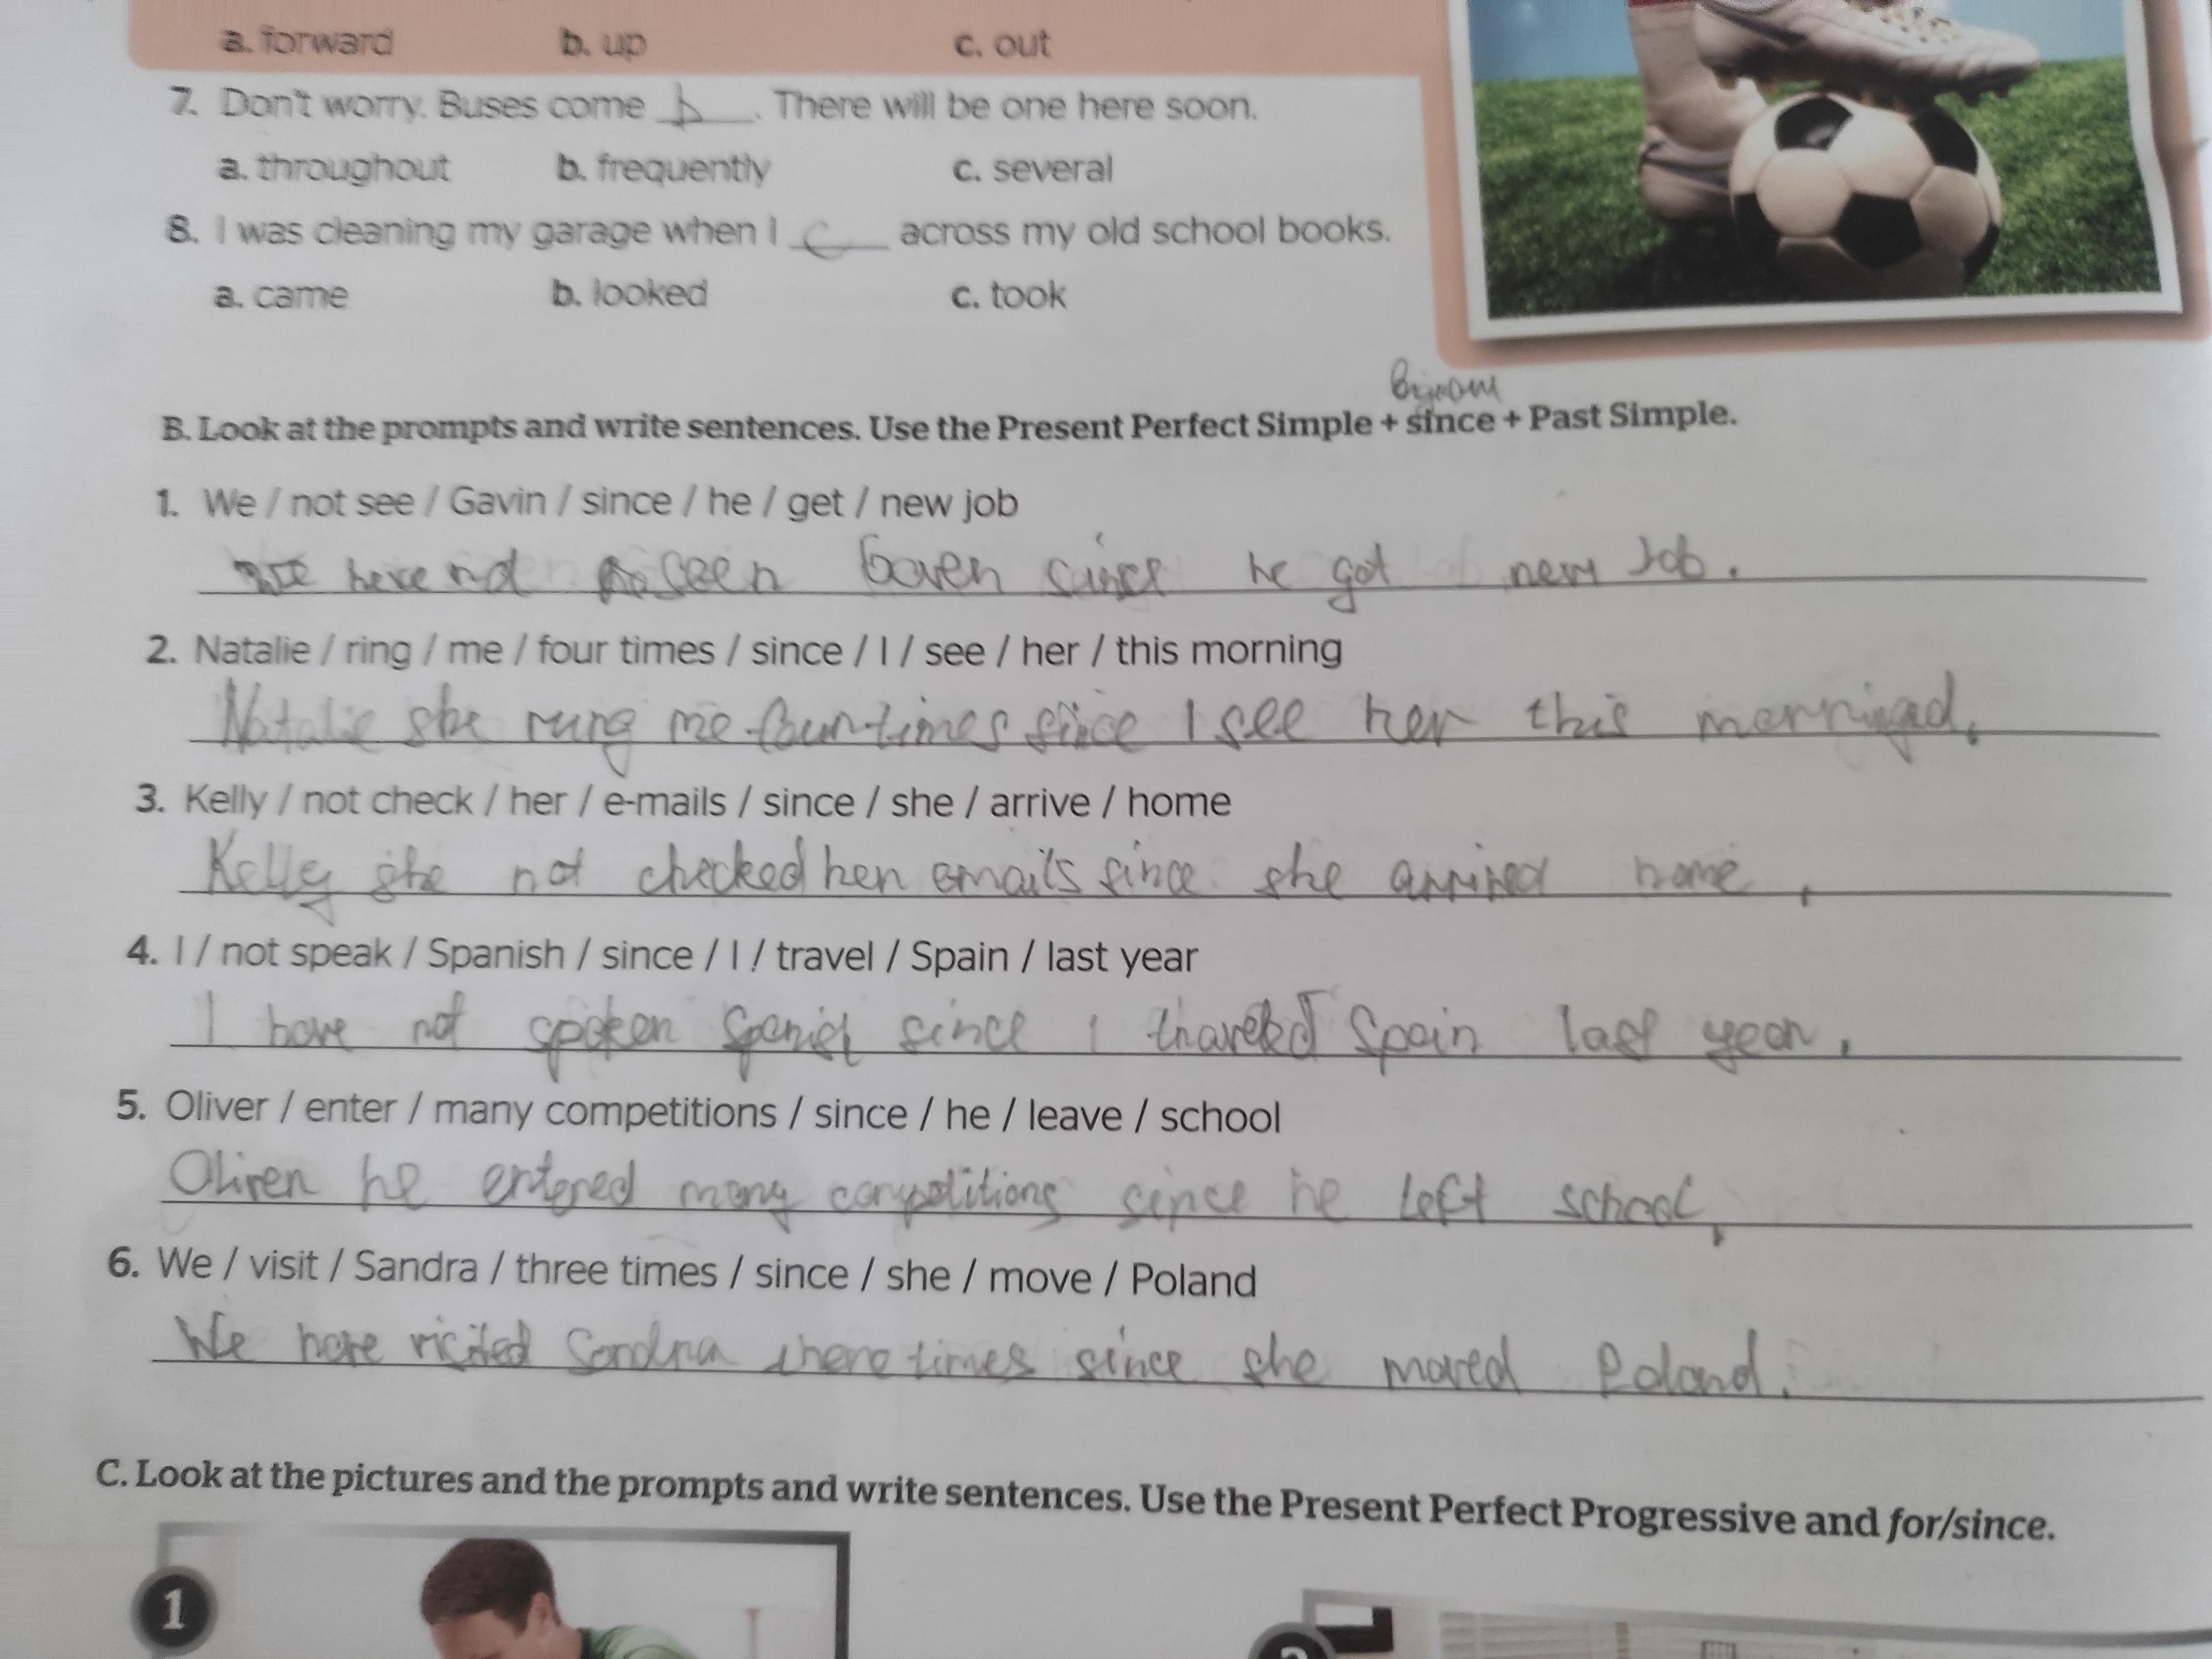 a. forward b. up c. out
7. Don't worry. Buses come b. There will be one here soon.
a. throughout b. frequently c. several
8. I was cleaning my garage when I c across my old school books.
a. came b. looked c. took
B. Look at the prompts and write sentences. Use the Present Perfect Simple + since + Past Simple.
1. We / not see / Gavin / since / he / get / new job
have not seen Gaven since he got new Job.
2. Natalie / ring / me / four times / since / I / see / her / this morning
Natalie she rung me four times since I see her this
3. Kelly / not check / her / e-mails / since / she / arrive / home
Kelly she not checked her emails since she arrived home.
4. I / not speak / Spanish / since / I / travel / Spain / last year
I have not spoken since I Spain last year.
5. Oliver / enter / many competitions / since / he / leave / school
Oliver he entered many since he left school.
6. We / visit / Sandra / three times / since / she / move / Poland
We have visited Sandra times since she moved Poland.
C. Look at the pictures and the prompts and write sentences. Use the Present Perfect Progressive and for/since.
1